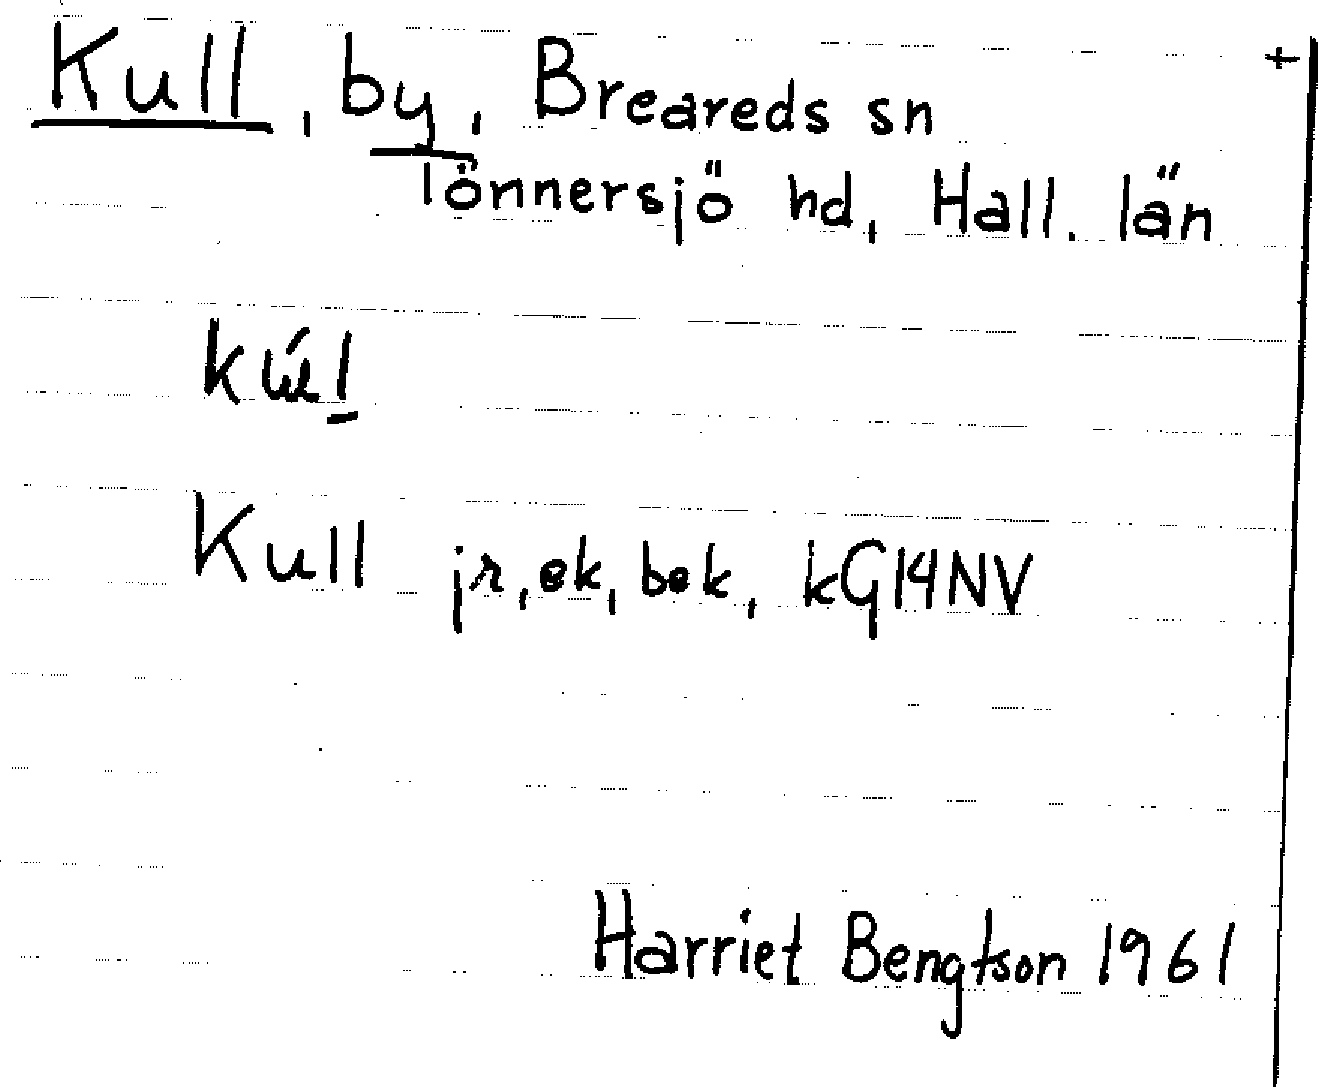 Kull, by, Breareds sn +
Tönnersjö hd, Hall. län
Kull jr, ek, bek, kG14NV
Harriet Bengtson 1961